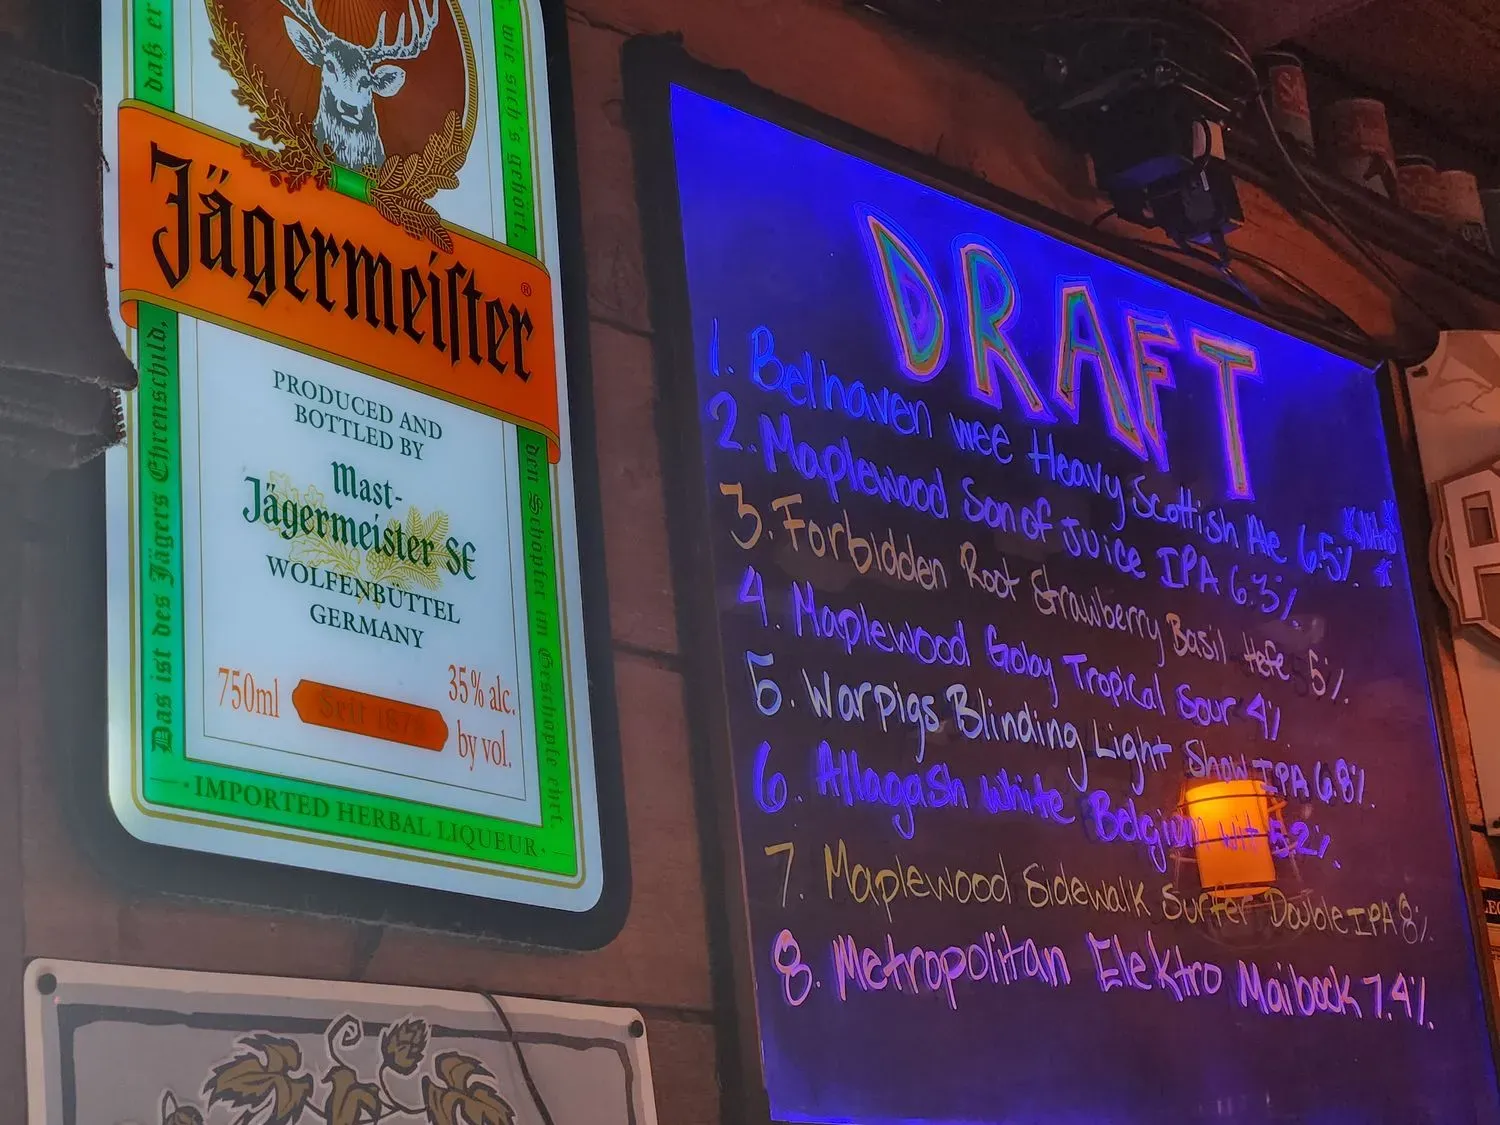 daß er
wie sich's gehört,
Jägermeister®
PRODUCED AND
BOTTLED BY
Mast-
Jägermeister SE
WOLFENBÜTTEL
GERMANY
750ml
Seit 1878
35% alc.
by vol.
Das ist des Jägers Ehrenschild,
den Schöpfer im Geschöpfe ehrt.
· IMPORTED HERBAL LIQUEUR ·
DRAFT
1. Belhaven wee Heavy Scottish Ale 6.5% *Nitro*
2. Maplewood Son of Juice IPA 6.3%
3. Forbidden Root Strawberry Basil Hefe 5%
4. Maplewood Goby Tropical Sour 4%
5. Warpigs Blinding Light Show IPA 6.8%
6. Allagash White Belgian Wit 5.2%
7. Maplewood Sidewalk Surfer Double IPA 8%
8. Metropolitan Elektro Maibock 7.4%